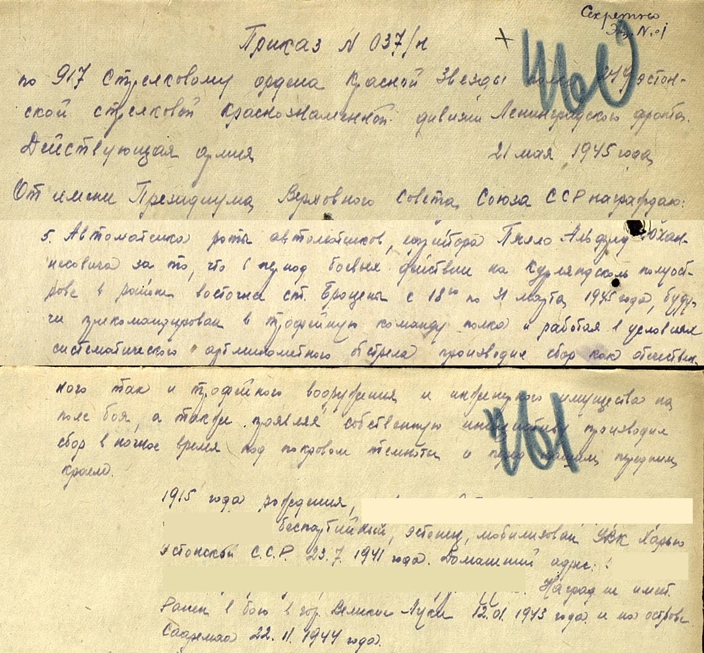 Секретно
Экз. N. 1
Приказ N 037/н
по 917 Стрелковому ордена Красной Звезды 249 эстон-
ской стрелковой Краснознаменной дивизии Ленинградского фронта.
Действующая армия 21 мая 1945 года
От имени Президиума Верховного Совета Союза ССР награждаю:
5. Автоматчика роты автоматчиков, Альфред Юхан-
несовича за то, что в период боевых действий на Курляндском полуост-
рове в районе восточнее ст. Броцены с 18го по 31 марта 1945 года, буду-
чи прикомандирован в трофейную команду полка и работая в условиях
систематического артминометного обстрела производил сбор как отечествен
ного так и трофейного вооружения и инженерного имущества на
поле боя, а также проявляя собственную инициативу производил
сбор в ночное время под покровом темноты и перед нашим передним
краем.
1915 года рождения,
беспартийный, эстонец, мобилизован УВК Харью
Эстонской С.С.Р. 23.7.1941 года. Домашний адрес:
Наград не имеет.
Ранен в бою в гор. Великие Луки 12.01.1943 года и на острове
Сааремаа 22.11.1944 года.